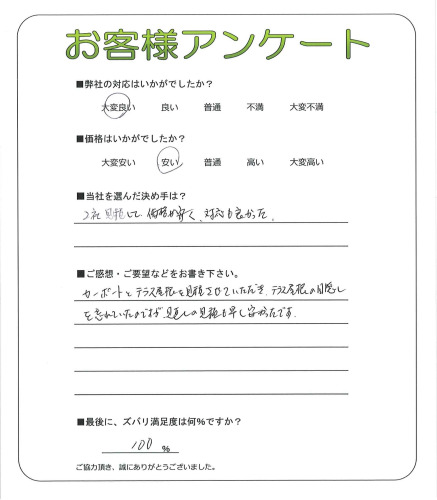 お客様アンケート
■弊社の対応はいかがでしたか?
大変良い 良い 普通 不満 大変不満
■価格はいかがでしたか?
大変安い 安い 普通 高い 大変高い
■当社を選んだ決め手は?
2社見積して価格が安く、対応も良かった。
■ご感想・ご要望などをお書き下さい。
カーポートとテラス屋根を見積させていただき、テラス屋根の目隠し
を忘れていたのですが 見直しの見積も早し
■最後に、ズバリ満足度は何%ですか?
100 %
ご協力頂き、誠にありがとうございました。